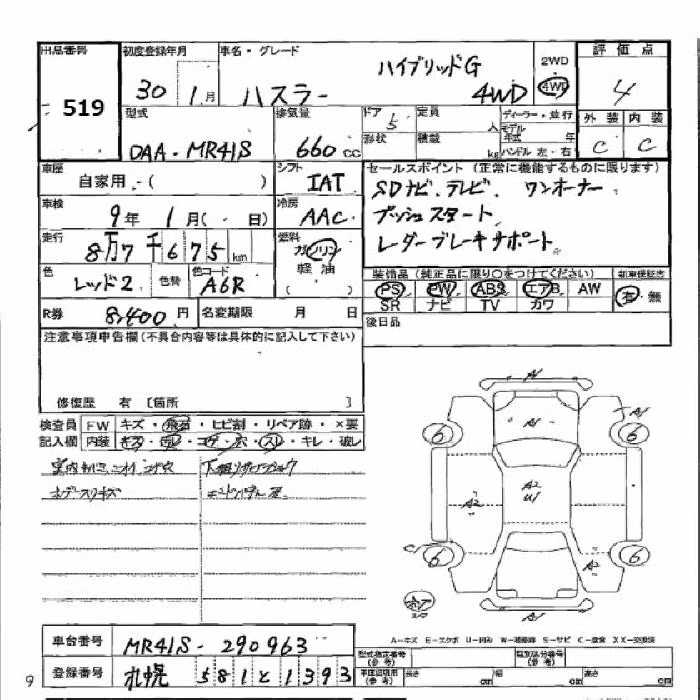 出品番号 519
初度登録年月 30 1月
車名・グレード ハイブリッドG
ハスラー 4WD
2WD
4WD
評価点 4
外装 内装
C C
型式 DAA-MR41S
排気量 660cc
ドア 5 定員 人
形状 積載 kg
ディーラー・並行
モデル年式 年
ハンドル 左・右
車歴 自家用・( )
シフト IAT
車検 9年 1月(・日)
冷房 AAC
走行 8万7千675km
燃料 ガソリン
軽油
( )
色 レッド2 色替 色コード A6R
R券 8,400円 名変期限 月 日
セールスポイント (正常に機能するものに限ります)
SDナビ、テレビ、ワンオーナー
プッシュスタート、
レーダーブレーキサポート。
装備品(純正品に限り○をつけてください)
PS PW ABS エアB AW
SR ナビ TV カワ
新車保証書
有・無
後日品
注意事項申告欄(不具合内容等は具体的に記入して下さい)
修復歴 有 〔箇所 〕
検査員記入欄
FW キズ・飛石・ヒビ割・リペア跡・×要
内装 キズ・汚レ・コゲ・穴・スレ・キレ・破レ
A1
A1
A1
A2
U1
A2
A2
A1
6 6
6 6
A-キズ E-エクボ U-凹み W-補修跡 S-サビ C-腐食 XX-交換済
車台番号 MR41S-290963
登録番号 札幌 581 と 1393
型式指定番号(参考)
類別区分番号(参考)
長さ cm 幅 cm 高さ cm
9